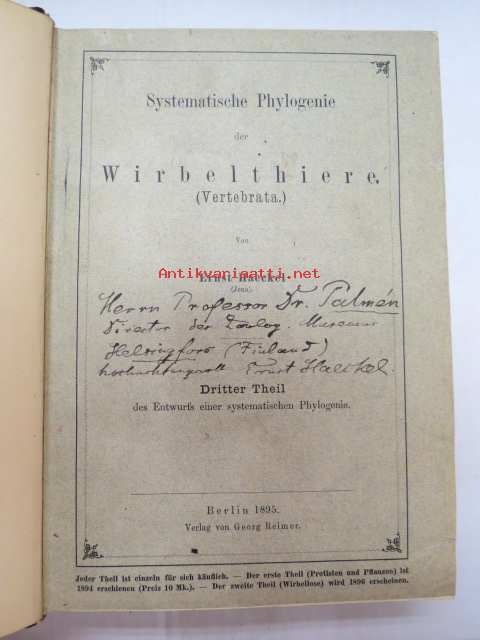 Systematische Phylogenie
der
Wirbelthiere.
(Vertebrata.)
Von
Antikvariaatti.net
Ernst Haeckel
(Jena).
Herrn Professor Dr. Palmén
Director der Zoolog. Museum
Helsingfors (Finland)
hochachtungsvoll Ernst Haeckel.
Dritter Theil
des Entwurfs einer systematischen Phylogenie.
Berlin 1895.
Verlag von Georg Reimer.
Jeder Theil ist einzeln für sich käuflich. — Der erste Theil (Protisten und Pflanzen) ist
1894 erschienen (Preis 10 Mk.). — Der zweite Theil (Wirbellose) wird 1896 erscheinen.